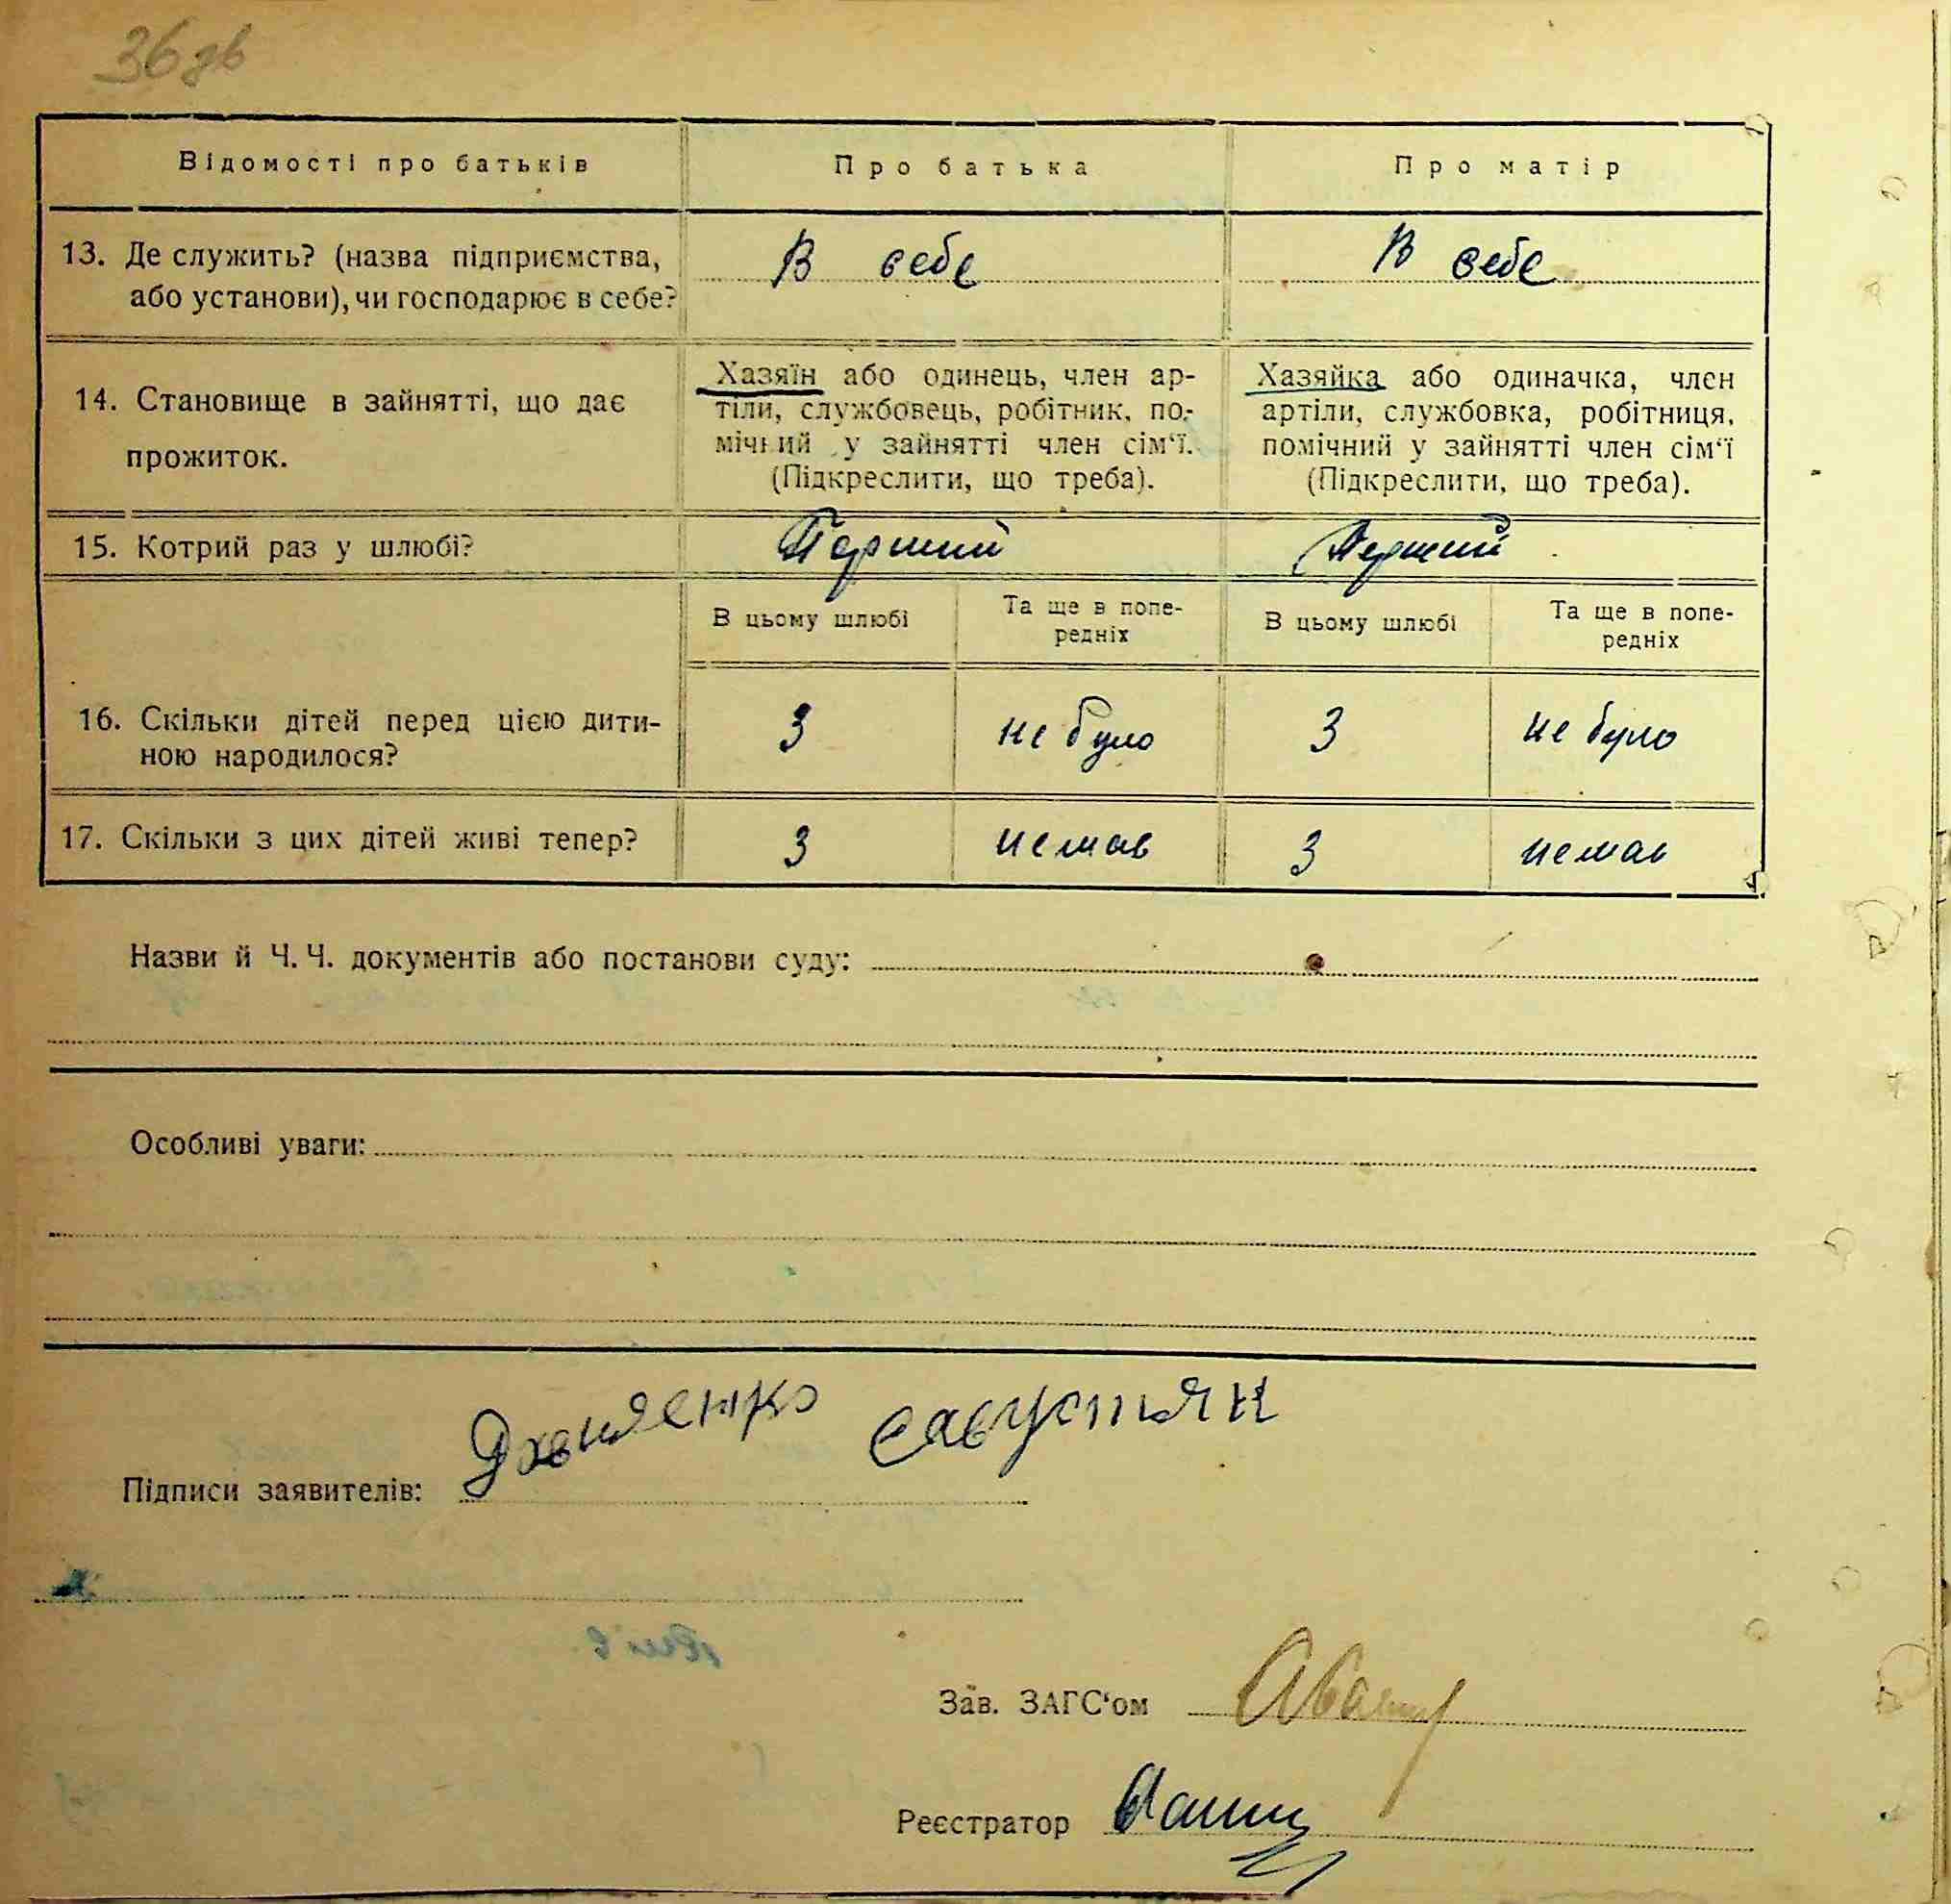 36 зв
Відомості про батьків
Про батька
Про матір
13. Де служить? (назва підприємства,
або установи), чи господарює в себе?
В себе
В себе
14. Становище в зайнятті, що дає
прожиток.
Хазяїн або одинець, член ар-
тіли, службовець, робітник, по-
мічний у зайнятті член сім‘ї.
(Підкреслити, що треба).
Хазяйка або одиначка, член
артіли, службовка, робітниця,
помічний у зайнятті член сім‘ї
(Підкреслити, що треба).
15. Котрий раз у шлюбі?
Перший
Перший
В цьому шлюбі
Та ще в попе-
редніх
В цьому шлюбі
Та ще в попе-
редніх
16. Скільки дітей перед цією дити-
ною народилося?
3
не було
3
не було
17. Скільки з цих дітей живі тепер?
3
немає
3
немає
Назви й Ч. Ч. документів або постанови суду:
Особливі уваги:
савустян
Підписи заявителів:
Зав. ЗАГС‘ом
Реєстратор